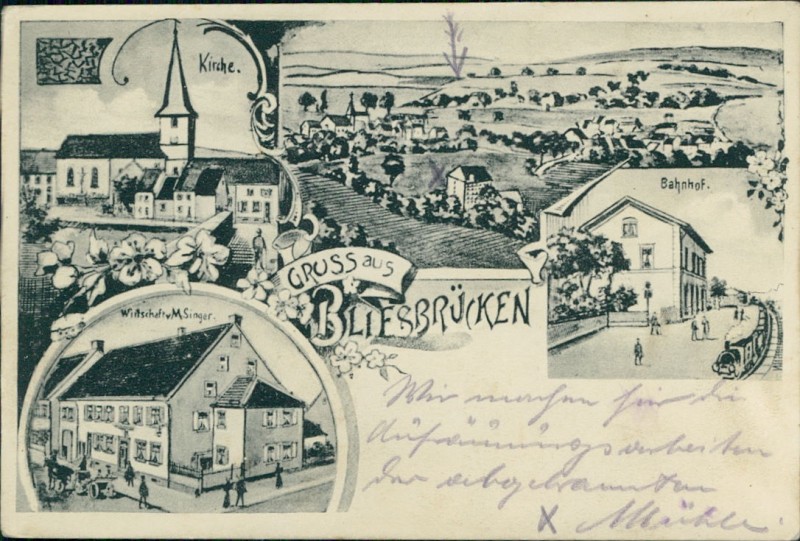 Kirche.
Bahnhof.
GRUSS aus
BLIESBRÜCKEN
Wirtschaft v. M. Singer.
Wir machen hier die
Aufräumungsarbeiten
der abgebrannten
X Mühle.